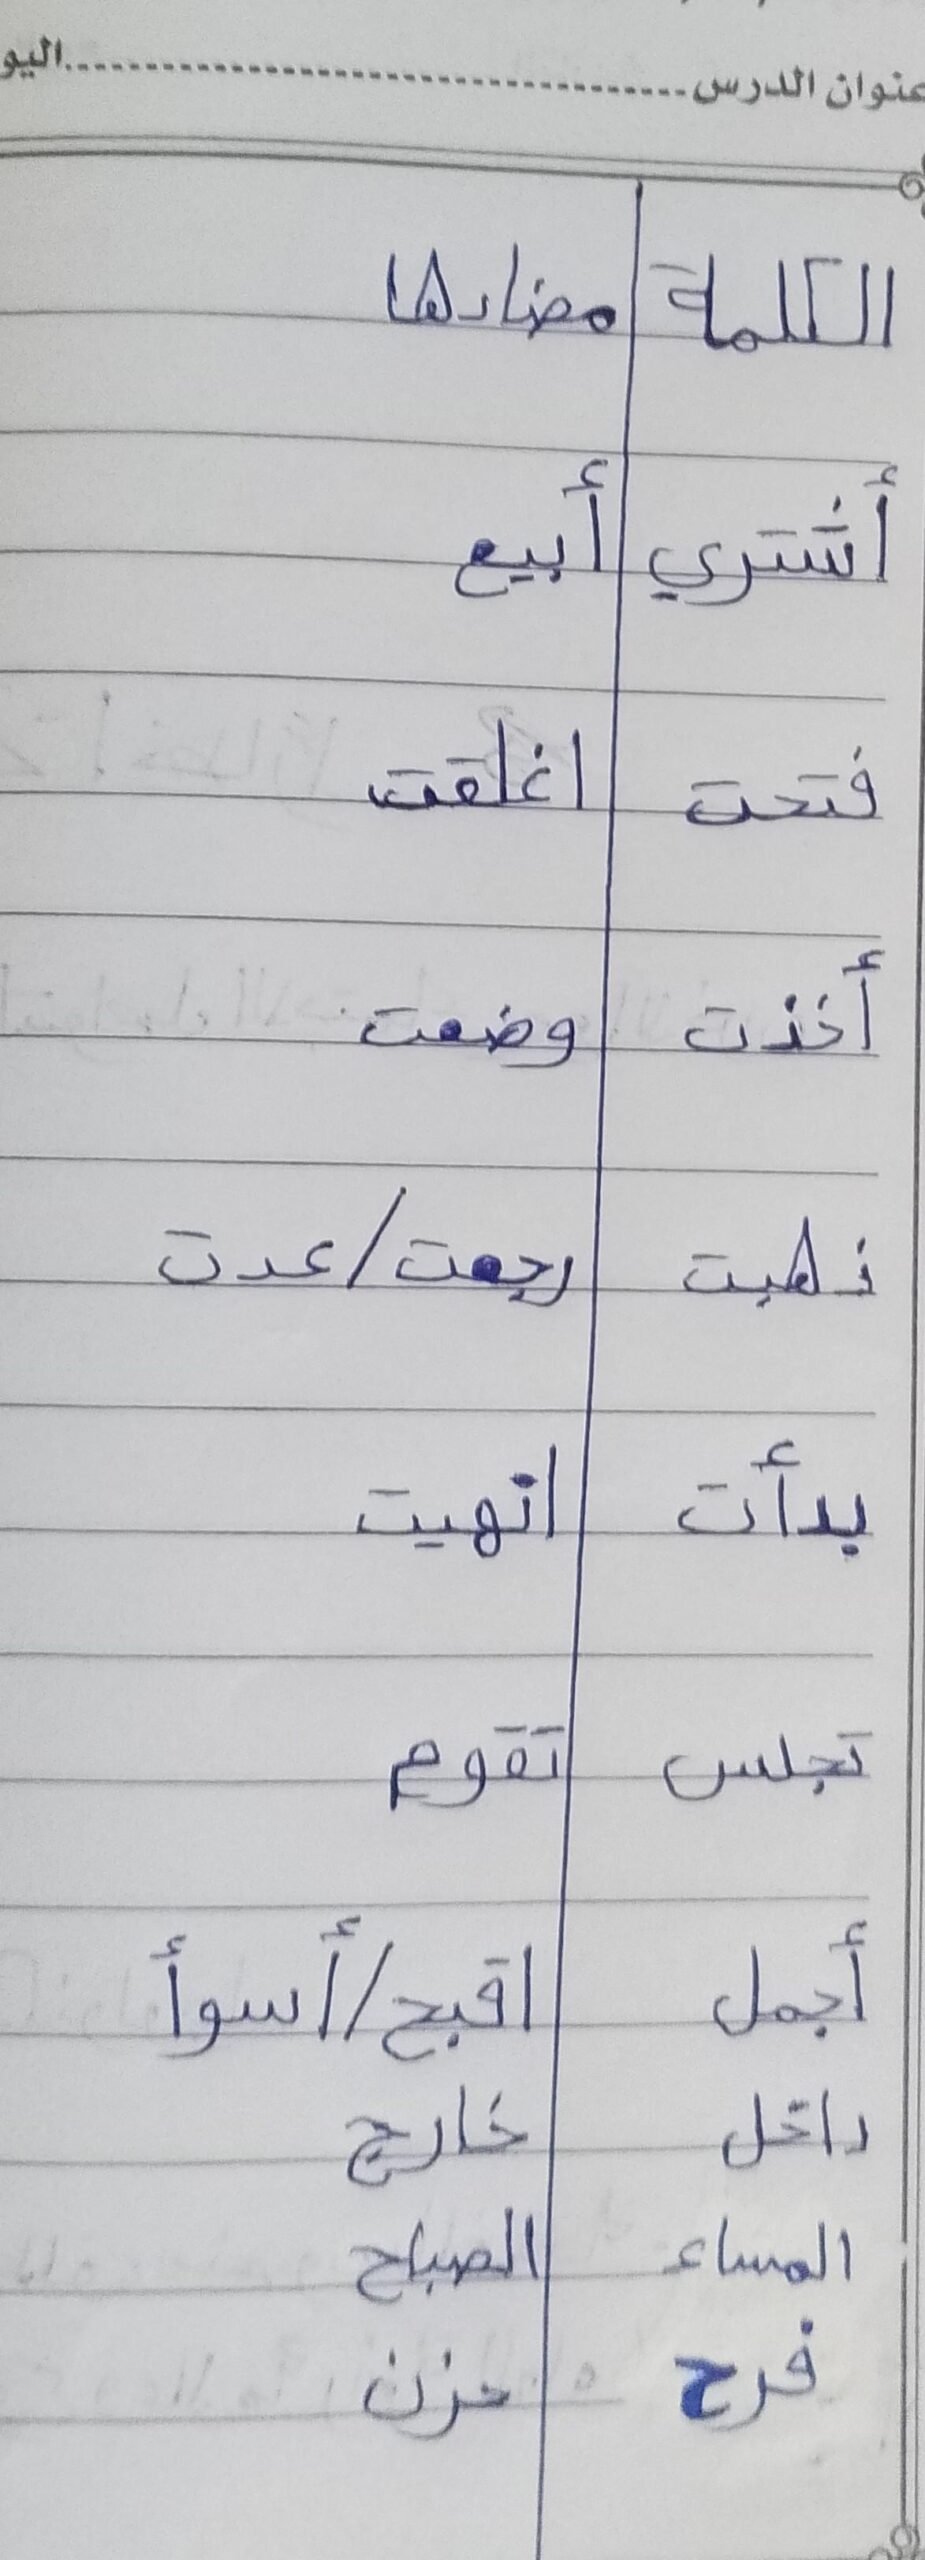 عنوان الدرس ........................ اليو
الكلمة مضادها
أشتري أبيع
فتحت اغلقت
أخذت وضعت
ذهبت رجعت/عدت
بدأت انهيت
تجلس تقوم
أجمل اقبح/أسوأ
داخل خارج
المساء الصباح
فرح حزن